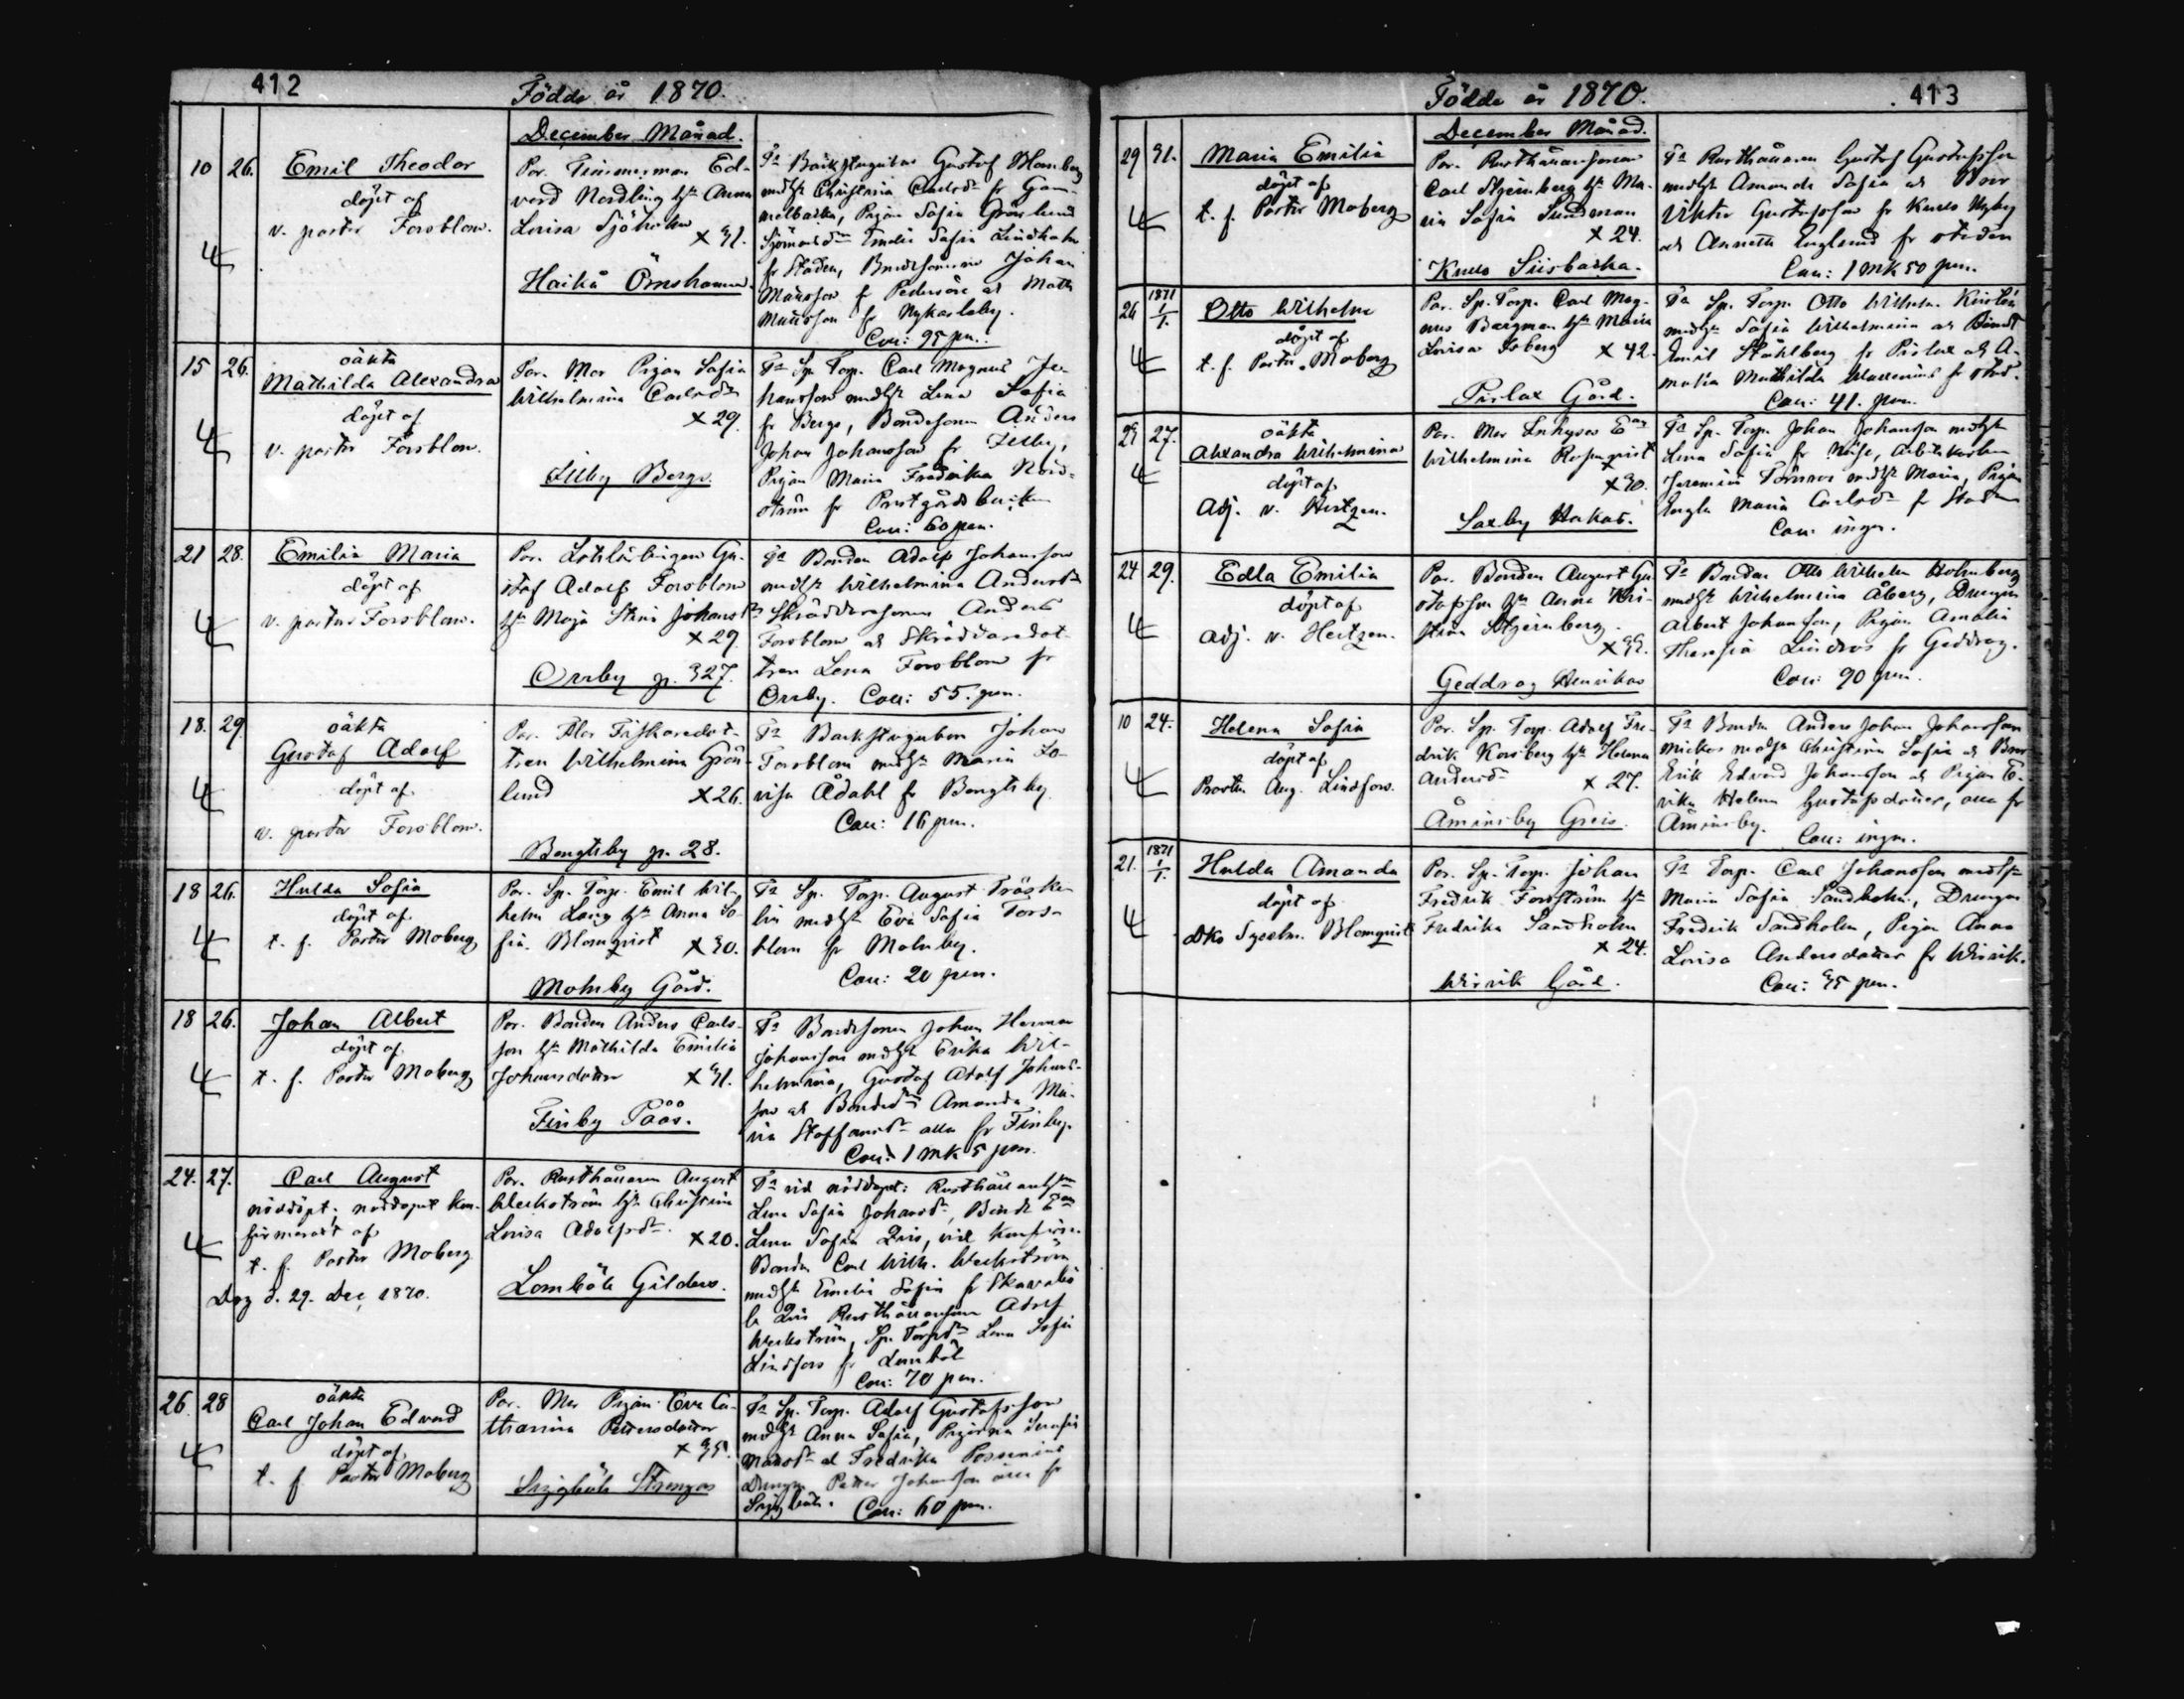 412
Födde år 1870.
December Månad.
10 26. Emil Theodor
döpt af
v. pastor Forsblom.
Par. Timmerman Ed-
vard Nordling h. Anna
Lovisa Sjöholm
x 31.
Haikå Örnshamn.
Gustaf Blomberg
Christina Carlsdr fr Gam-
melbacka, Pigan Sofia Grönlund
Emelie Sofia Lindholm
fr Staden, Johan
Månsson fr Pedersöre och Matts
Månsson fr Nykarleby.
Coll: 95 pen.
15 26. oäkta
Mathilda Alexandra
döpt af
v. pastor Forsblom.
Par. Mor Pigan Sofia
Wilhelmina Carlsdr
x 29.
Illby Bergs.
Fa Sp. Torp. Carl Magnus Jo-
hansson medhu Lena Sofia
fr Bergs, Bondesonen Anders
Johan Johansson fr Illby,
Pigan Maria Fredrika Nord-
ström fr Prestgårdsbacken
Coll: 60 pen.
21 28. Emilia Maria
döpt af
v. pastor Forsblom.
Par. Gu-
staf Adolf Forsblom
h. Maja Stina Johansdr
x 29.
Orrby p. 327.
Fa Bonden Adolf Johansson
medhu Wilhelmina Andersdr
Skräddaresonen Anders
Forsblom och Skräddaredot-
tren Lena Forsblom fr
Orrby. Coll: 55. pen.
18. 29. oäkta
Gustaf Adolf
döpt af
v. pastor Forsblom.
Par. Mor Fiskaredot-
tren Wilhelmina Grön-
lund x 26.
Bengtsby p. 28.
Fa Backstugubon Johan
Forsblom medhu Maria Lo-
visa Ådahl fr Bengtsby.
Coll: 16 pen.
18 26. Hulda Sofia
döpt af
t. f. Pastor Moberg
Par. Sp. Torp. Emil Wil-
helm Lång h. Anna So-
fia Blomqvist x 30.
Molnby Gård.
Fa Sp. Torp. August Träske-
lin medhu Eva Sofia Fors-
blom fr Molnby.
Coll: 20 pen.
18 26. Johan Albert
döpt af
t. f. Pastor Moberg
Par. Bonden Anders Carls-
son h. Mathilda Emilia
Johansdotter x 31.
Finby Påås.
Fa Bondesonen Johan Herman
Johansson medhu Erika Wil-
helmina, Gustaf Adolf Johans-
son och Amanda Ma-
ria Staffansdr alla fr Finby.
Coll: 1 mk 5 pen.
24. 27. Carl August
nöddöpt; nöddopet kon-
firmeradt af
t. f. Pastor Moberg
Dog d. 29. Dec 1870.
Par. Rusthållaren August
Weckström h. Christina
Lovisa Adolfsdr x 20.
Lomböle Gilders.
Fa vid nöddopet: Rusthållarehu
Lena Sofia Johansdr,
Lena Sofia
Bonden Carl Wilh. Weckström
medhu Emelie Sofia fr Skavarbö-
le Rusthållaresonen Adolf
Weckström, Sp. Torpdr Lena Sofia
Lindfors fr Lomböle
Coll: 70 pen.
26. 28 oäkta
Carl Johan Edvard
döpt af
t. f. Pastor Moberg
Par. Mor Pigan Eva Ca-
tharina Pettersdotter
x 35.
Seigböle Strengas
Fa Sp. Torp. Adolf Gustafsson
medhu Anna Sofia, Pigorna
och Fredrika
Drengen Petter Johansson alla fr
Seigböle. Coll: 60 pen.
413
Födde år 1870.
December Månad.
29 31. Maria Emilia
döpt af
t. f. Pastor Moberg
Par. Rusthållaresonen
Carl Stjernberg h. Ma-
ria Sofia Sundman
x 24.
Kullo Siisbacka.
Fa Rusthållaren Gustaf Gustafsson
medhu Amanda Sofia och
Viktor Gustafsson fr Kullo Nyby
och Annette Englund fr staden
Coll: 1 mk 50 pen.
26 1871 1/1. Otto Wilhelm
döpt af
t. f. Pastor Moberg
Par. Sp. Torp. Carl Mag-
nus Bergman h. Maria
Lovisa Isberg x 42.
Pirlax Gård.
Fa Sp. Torp. Otto Wilhelm
medhu Sofia Wilhelmina och
Emil Ståhlberg fr Pirlax och A-
malia Mathilda fr stad.
Coll: 41. pen.
27. oäkta
Alexandra Wilhelmina
döpt af
Adj. v. Hertzen.
Par. Mor Inhyses
Wilhelmina Rosenqvist
x 30.
Saxby Hakas.
Fa Sp. Torp. Johan Johansson medhu
Lena Sofia fr Näse, Arbetskarlen
Jeremias Törnroos medhu Maria, Pigan
Maria Carlsdr fr Staden
Coll: ingen.
24 29. Edla Emilia
döpt af
Adj. v. Hertzen.
Par. Bonden August Gu-
stafsson h. Anna Kri-
stina Stjernberg.
x 33.
Geddrag Henriksas
Fa Bonden Otto Wilhelm Holmberg
medhu Wilhelmina Åberg, Drengen
Albert Johansson, Pigan Amalia
Theresia Lindroos fr Geddrag.
Coll: 90 pen.
10 24. Helena Sofia
döpt af
Prosten Aug. Lindfors.
Par. Sp. Torp. Adolf Fre-
drik Korsberg h. Helena
Andersdr x 27.
Åminsby Greis.
Fa Bonden Anders Johan Johansson
Mickos medhu Christina Sofia och
Erik Edvard Johansson och Pigan E-
rika Helena Gustafsdotter, alla fr
Åminsby. Coll: ingen.
21. 1871 1/1. Hulda Amanda
döpt af
Dko Sysslm. Blomqvist
Par. Sp. Torp. Johan
Fredrik Forsström h.
Fredrika Sandholm
x 24.
Wirvik Gård.
Fa Torp. Carl Johansson medhu
Maria Sofia Sandholm, Drengen
Fredrik Sandholm, Pigan Anna
Lovisa Andersdotter fr Wirvik.
Coll: 35 pen.